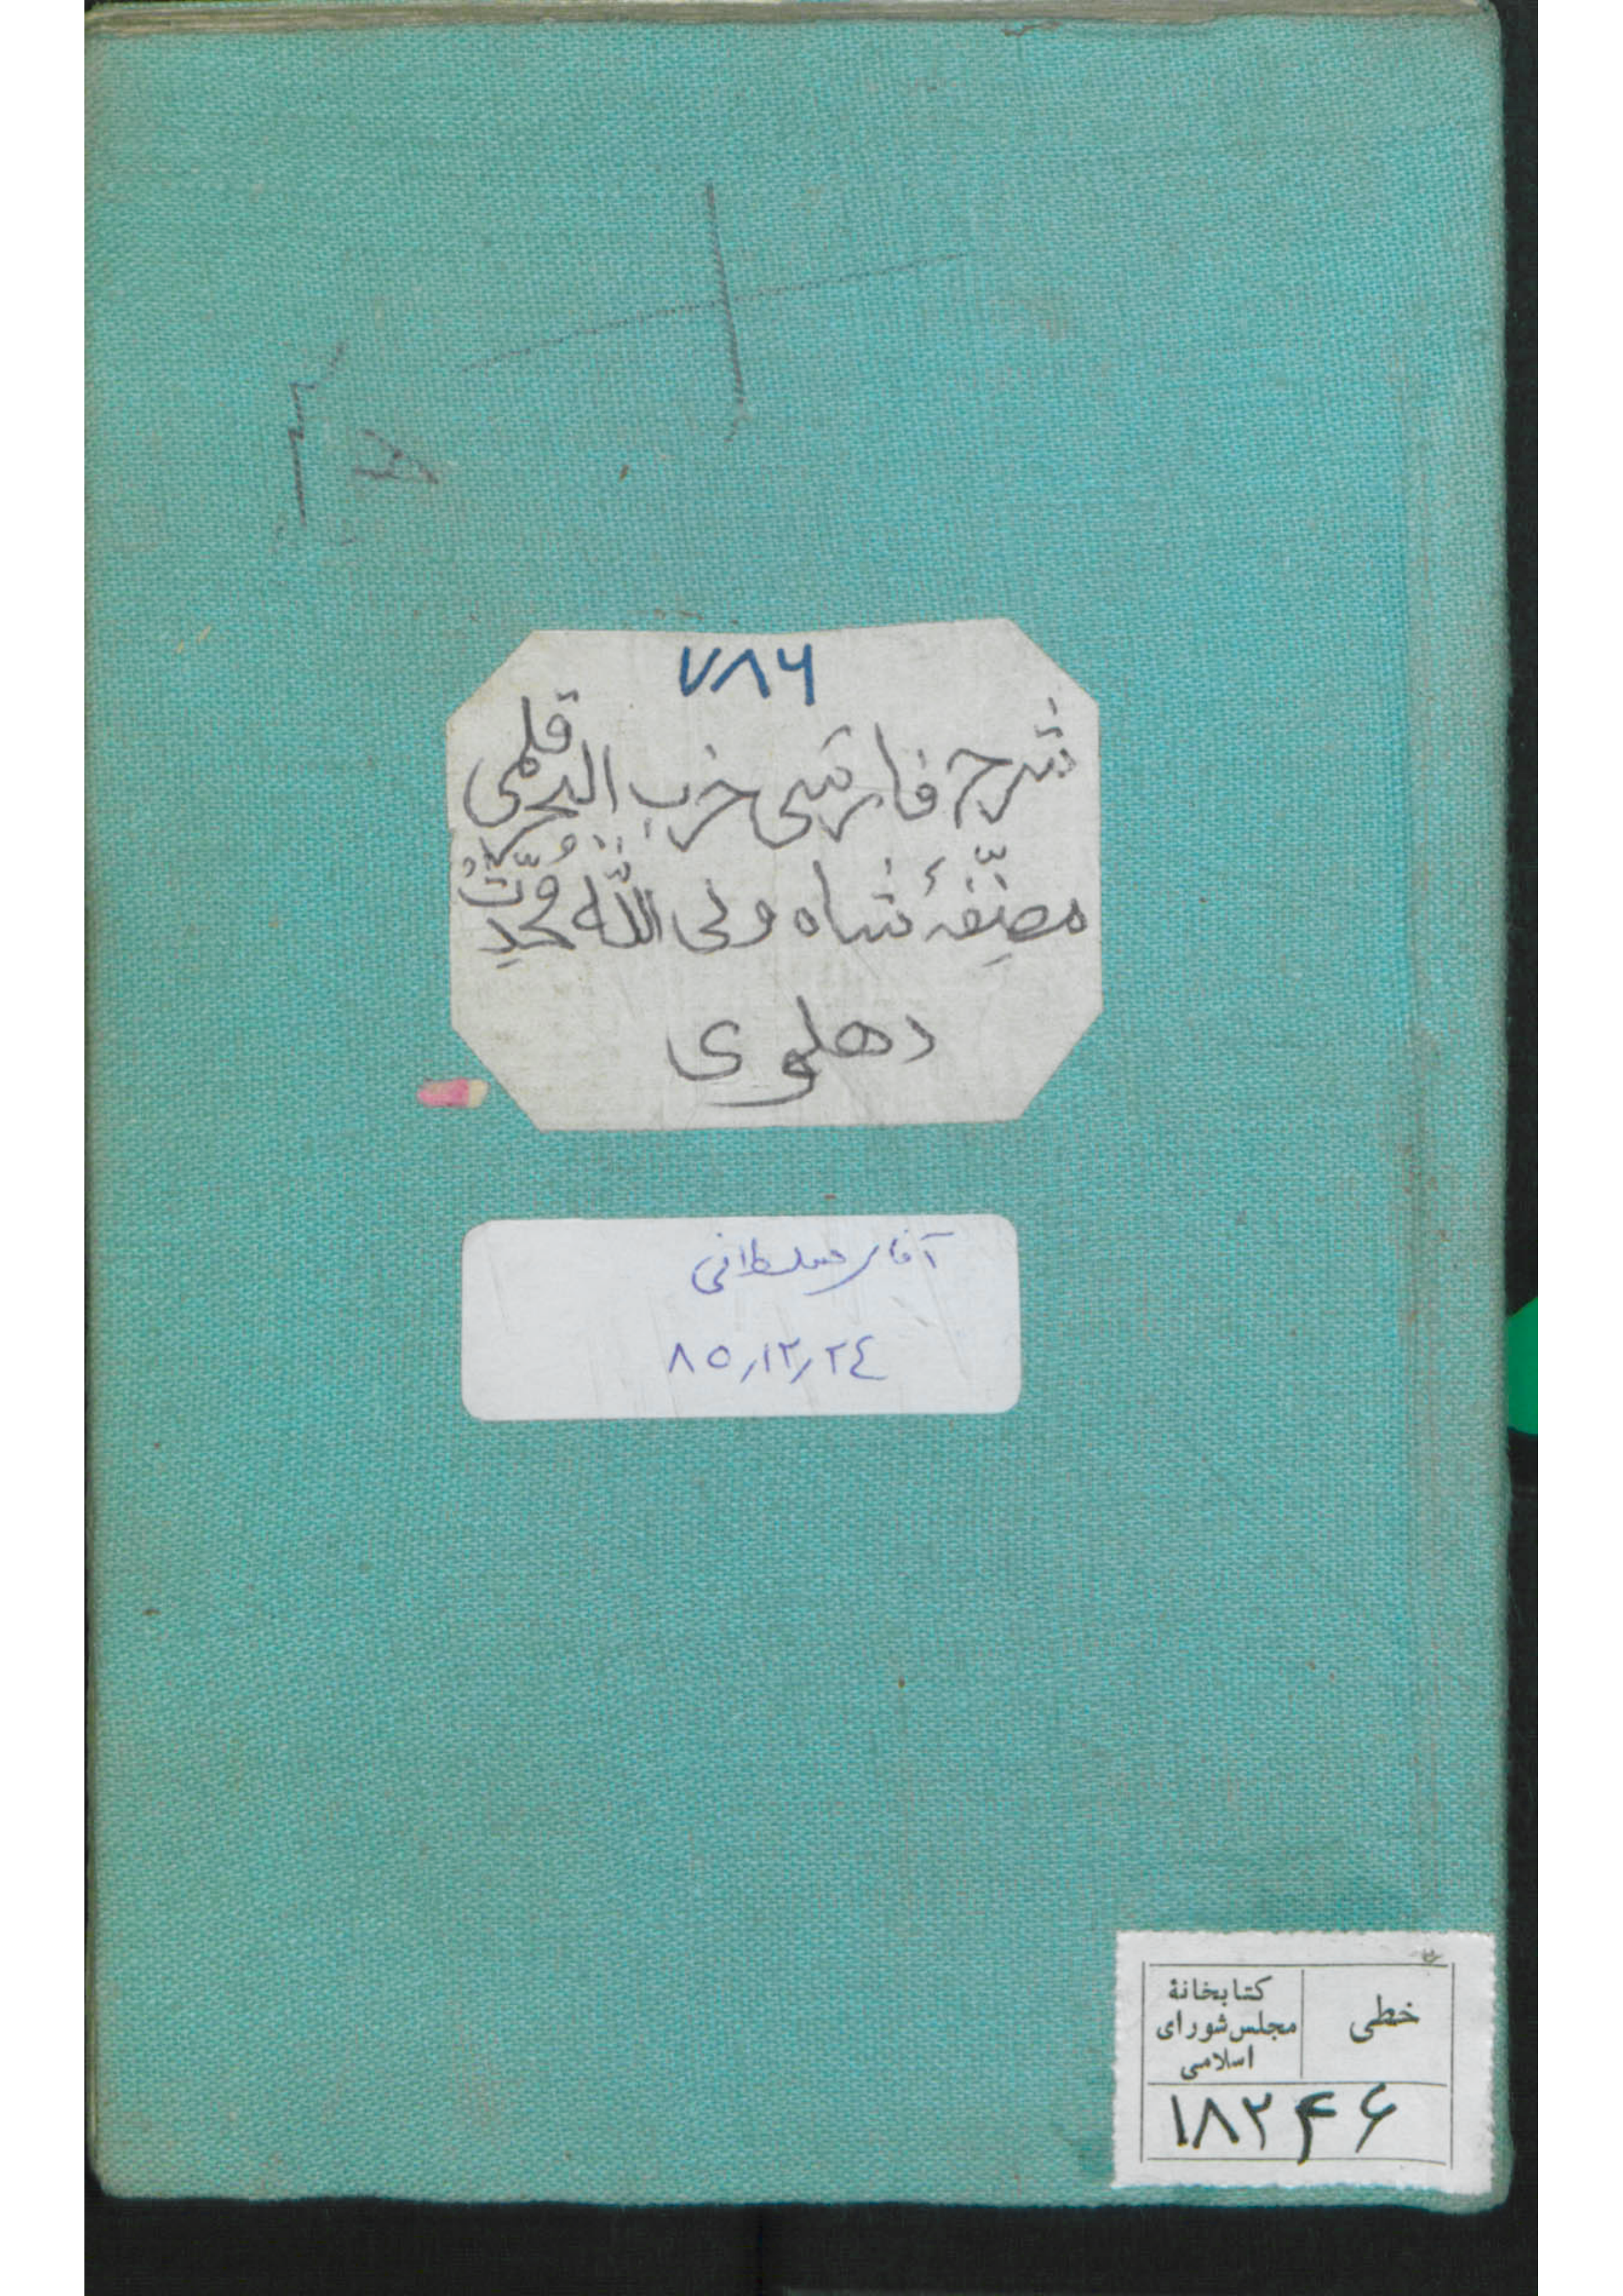 ۷۸۶
شرح فارسی حزب البحر قلمی
مصنّفۂ شاہ ولی اللّٰہ مُحَدِّثْ
دهلوی
آقای سلطانی
۸۵٫۱۲٫۲٤
خطی
کتابخانۀ
مجلس شورای
اسلامی
۱۸۲۴۶